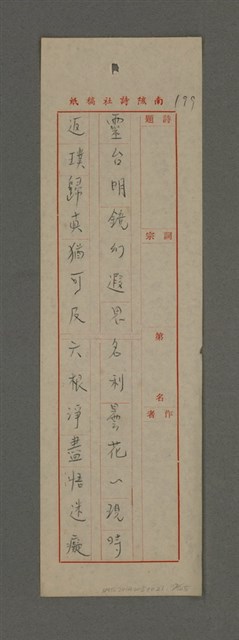 南陔詩社稿紙
177
詩題
詞宗
第 名
作者
靈台明鏡幻遐思名利曇花一現時
返璞歸真猶可及六根淨盡悟迷癡